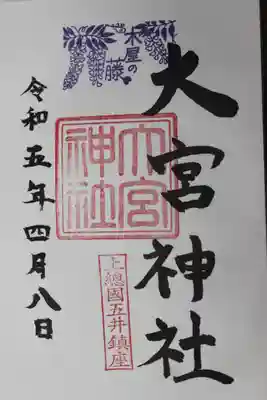 木屋の藤
大宮神社
大宮神社
上總國五井鎮座
令和五年四月八日